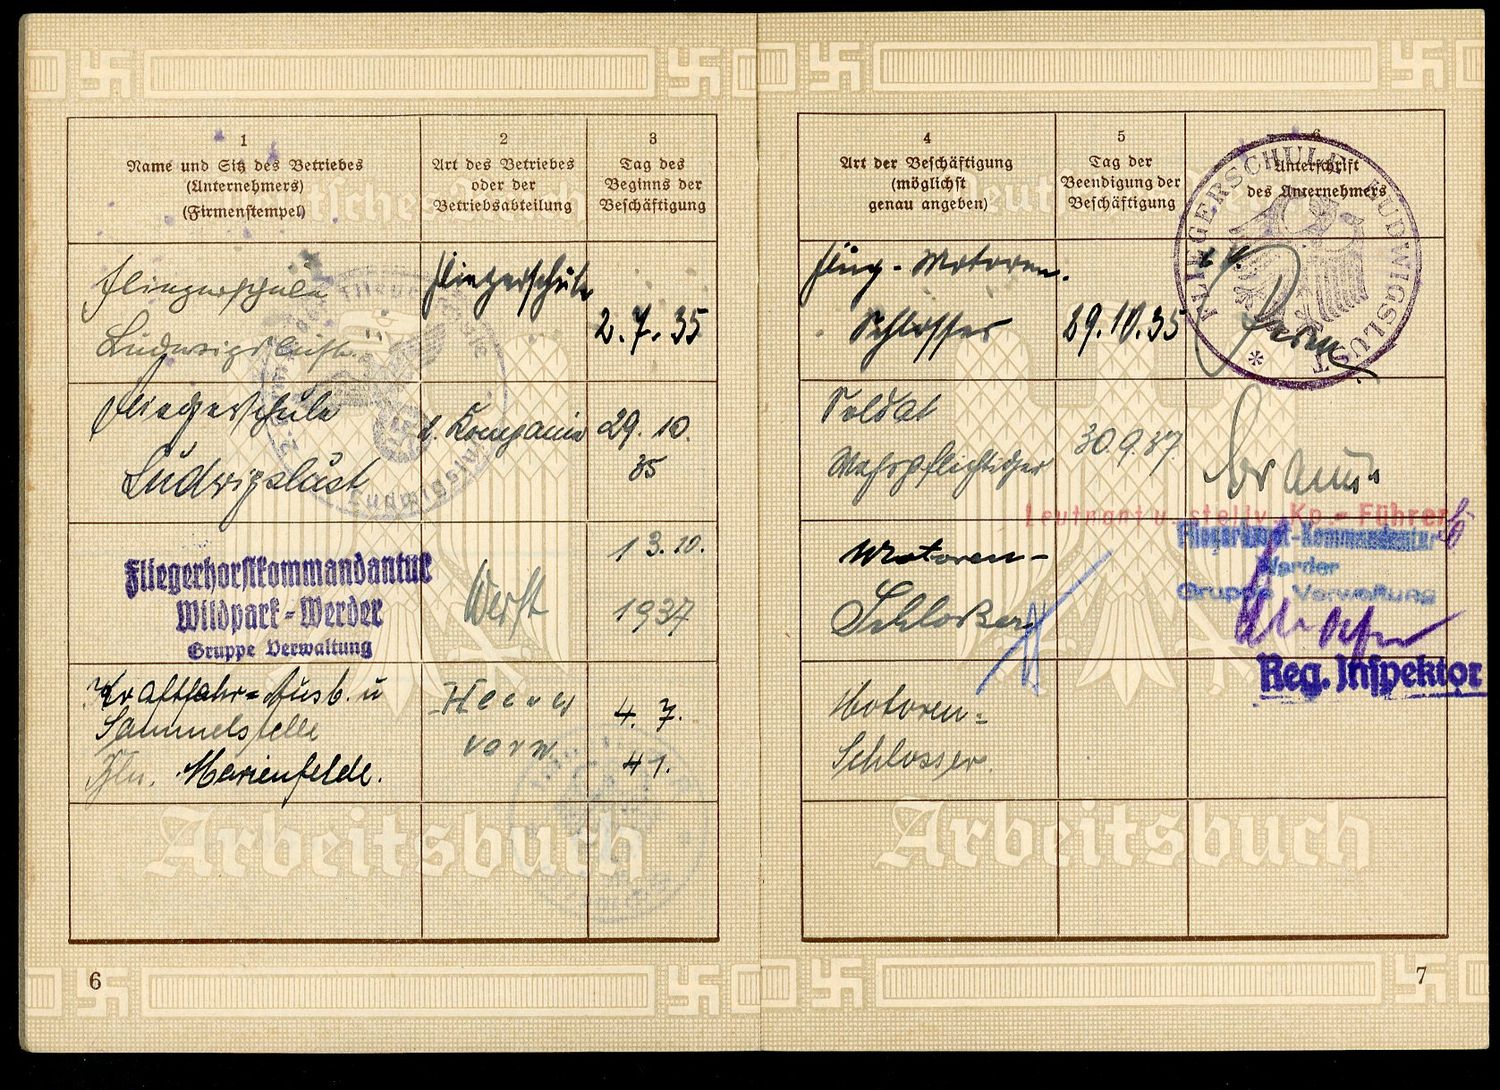 1
Name und Sitz des Betriebes
(Unternehmers)
(Firmenstempel)
2
Art des Betriebes
oder der
Betriebsabteilung
3
Tag des
Beginns der
Beschäftigung
Fliegerschule
Ludwigslust.
Fliegerschule
2.7.35
Fliegerschule
Ludwigslust
Kompanie
29.10.
35
Fliegerhorstkommandantur
Wildpark-Werder
Gruppe Verwaltung
Werft
13.10.
1937
Kraftfahr-Ausb. u
Sammelstelle
Bln. Marienfelde.
Heeres
verw.
4.7.
41.
Deutsches Reich
Arbeitsbuch
6
4
Art der Beschäftigung
(möglichst
genau angeben)
5
Tag der
Beendigung der
Beschäftigung
6
Unterschrift
des Unternehmers
FLIEGERSCHULE LUDWIGSLUST
Flug-Motoren.
Schlosser
29.10.35
Soldat
Wehrpflichtiger
30.9.37
Leutnant u. stellv. Kp.-Führer
Motoren-
Schlosser
Fliegerhorst-Kommandantur
Werder
Gruppe Verwaltung
Reg. Inspektor
Motoren=
Schlosser.
Arbeitsbuch
7